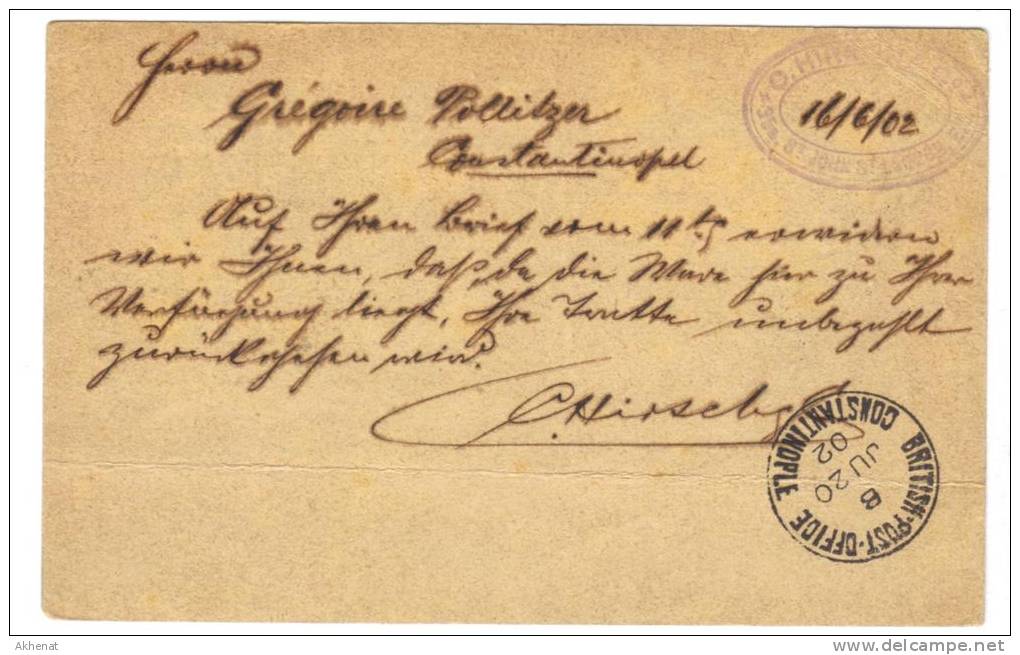 Herrn
Grégoire Pollitzer
Constantinopel
16/6/02
Auf Ihren Brief vom 11 ds erwidern
wir Ihnen, daß, da die Ware hier zu Ihrer
Verfügung liegt, Ihre Tratte unbezahlt
zurückgehen wird.
C. Hirsch
BRITISH·POST·OFFICE
CONSTANTINOPLE
B
JU 20
02
Akhenat
www.delcampe.net